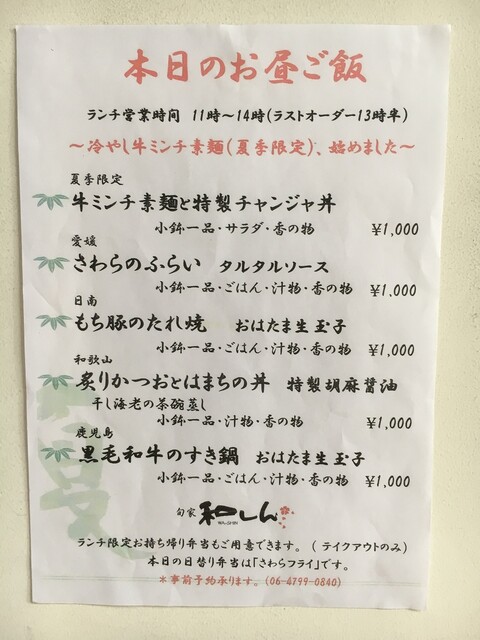 本日のお昼ご飯
ランチ営業時間 11時～14時(ラストオーダー13時半)
～冷やし牛ミンチ素麺(夏季限定)、始めました～
夏季限定
牛ミンチ素麺と特製チャンジャ丼
小鉢一品・サラダ・香の物 ¥1,000
愛媛
さわらのふらい タルタルソース
小鉢一品・ごはん・汁物・香の物 ¥1,000
日南
もち豚のたれ焼 おはたま生玉子
小鉢一品・ごはん・汁物・香の物 ¥1,000
和歌山
炙りかつおとはまちの丼 特製胡麻醤油
干し海老の茶碗蒸し
小鉢一品・汁物・香の物 ¥1,000
鹿児島
黒毛和牛のすき鍋 おはたま生玉子
小鉢一品・ごはん・汁物・香の物 ¥1,000
旬家 和しん
ランチ限定お持ち帰り弁当もご用意できます。(テイクアウトのみ)
本日の日替り弁当は「さわらフライ」です。
＊事前予約承ります。(06-4799-0840)